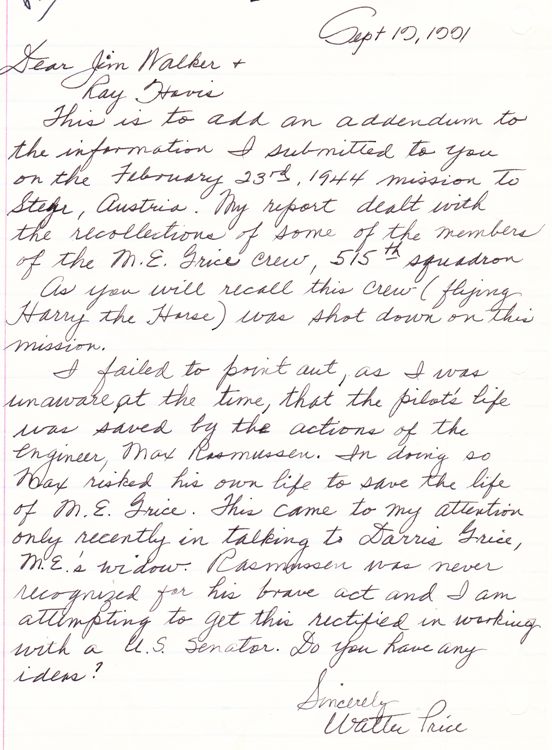 Sept 19, 1991
Dear Jim Walker +
Ray Havis
This is to add an addendum to
the information I submitted to you
on the February 23rd, 1944 mission to
Steyr, Austria. My report dealt with
the recollections of some of the members
of the M.E. Grice crew, 515th squadron
As you will recall this crew (flying
Harry the Horse) was shot down on this
mission.
I failed to point out, as I was
unaware at the time, that the pilot's life
was saved by the actions of the
Engineer, Max Rasmussen. In doing so
Max risked his own life to save the life
of M.E. Grice. This came to my attention
only recently in talking to Darris Grice,
M.E.'s widow. Rasmussen was never
recognized for his brave act and I am
attempting to get this rectified in working
with a U.S. Senator. Do you have any
ideas?
Sincerely
Walter Price